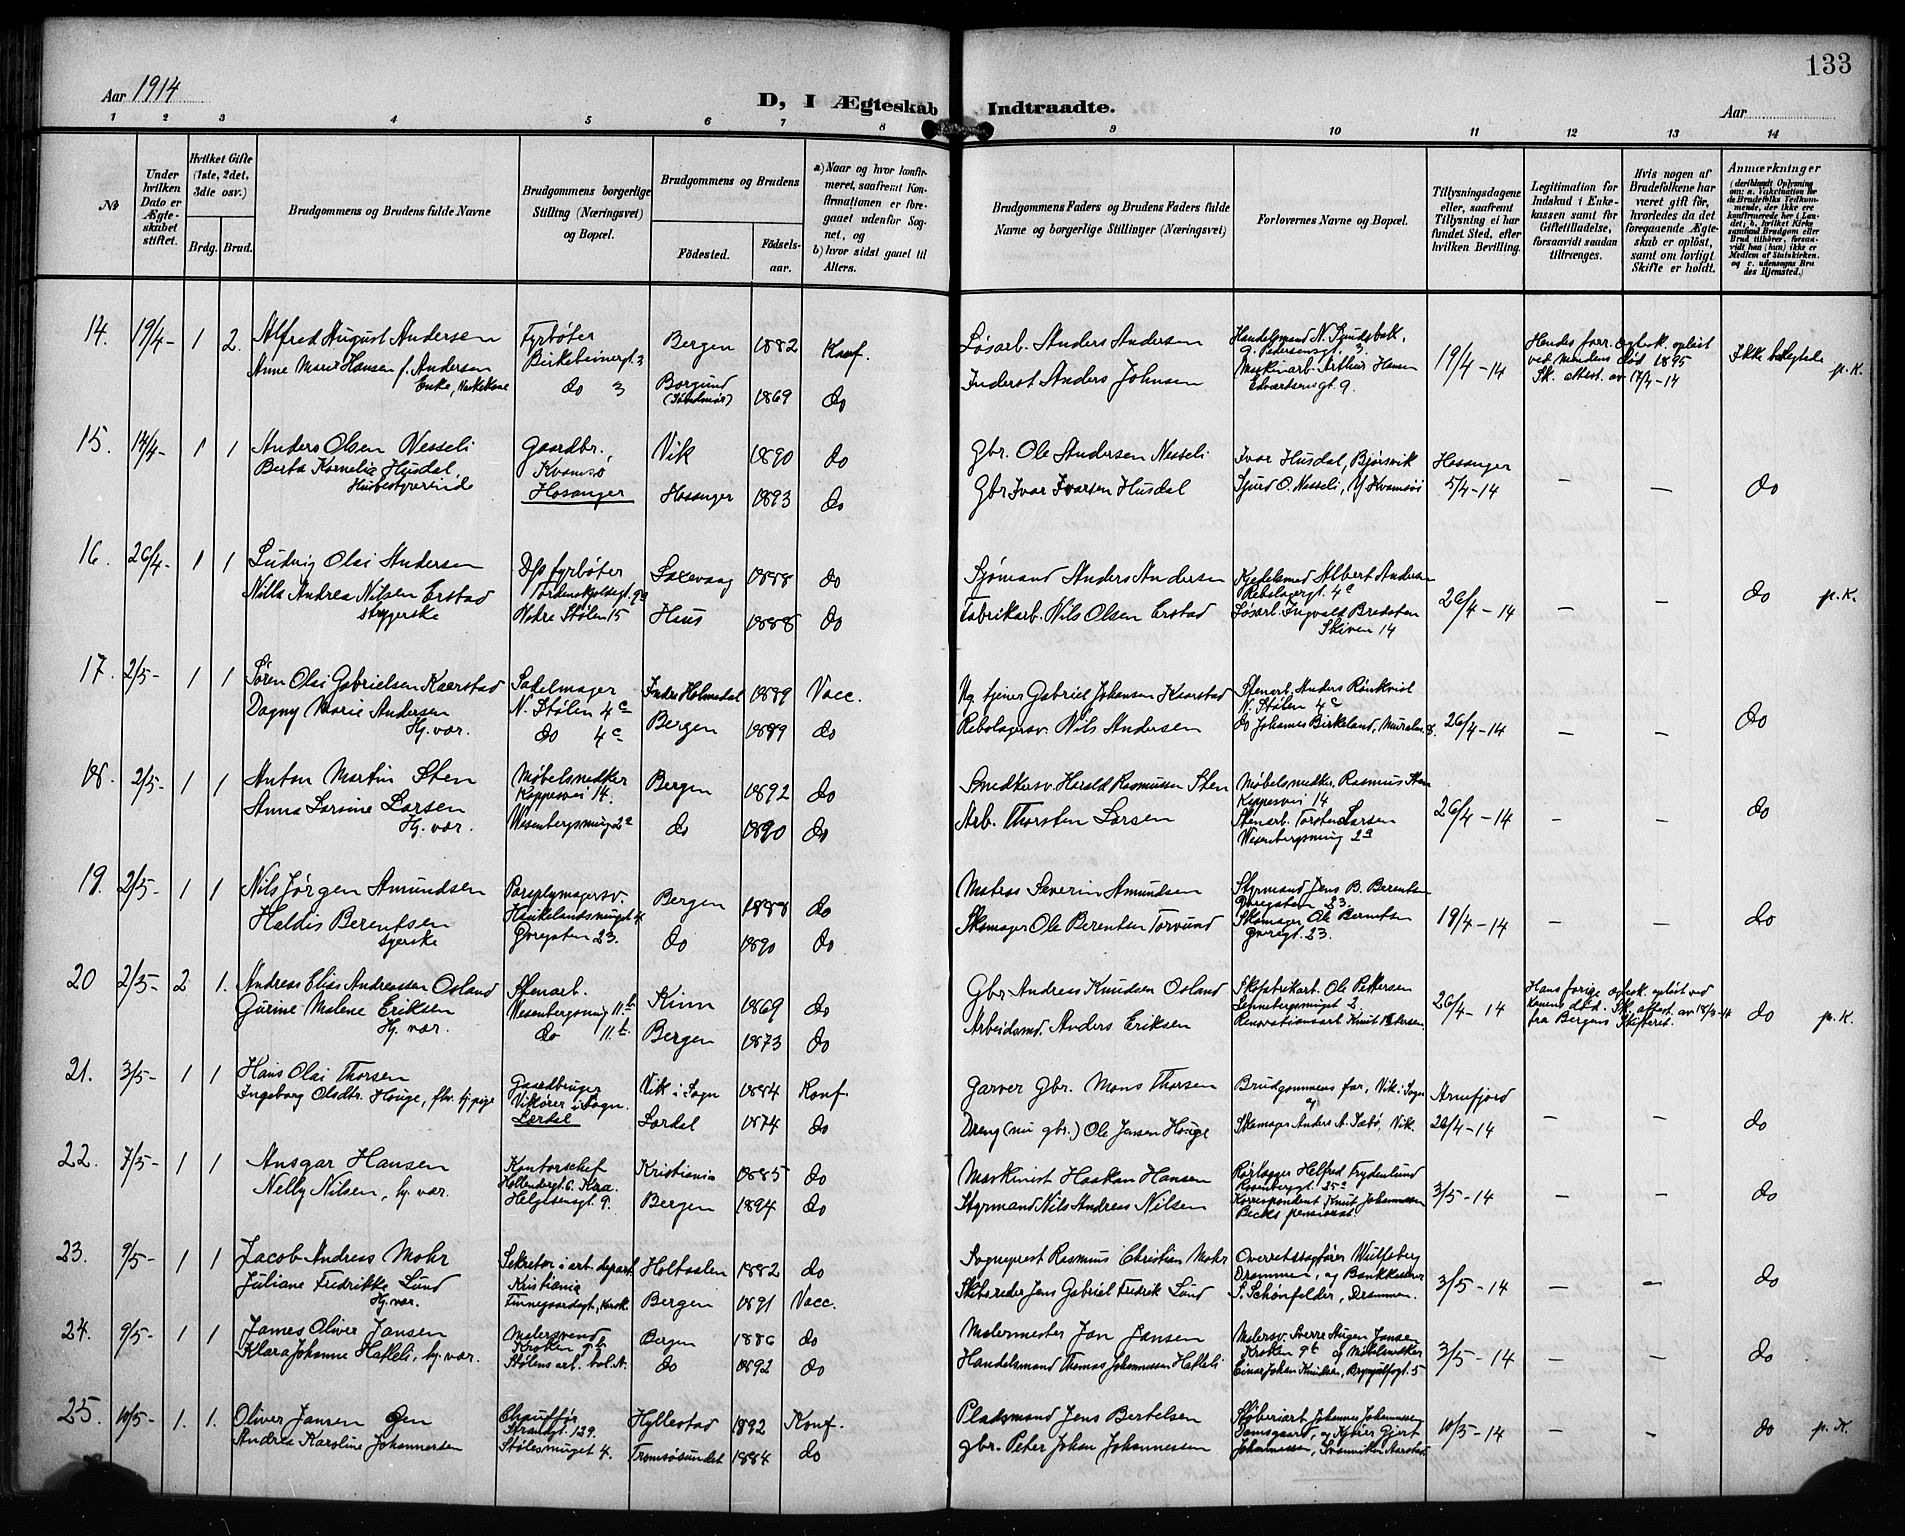 133
Aar 1914
D, I Ægteskab Indtraadte.
Aar
1 2 3 4 5 6 7 8 9 10 11 12 13 14
No
Under hvilken Dato er Ægteskabet stiftet.
Hvilket Gifte (1ste, 2det, 3die osv.)
Brdg. Brud.
Brudgommens og Brudens fulde Navne
Brudgommens borgerlige Stilling (Næringsvei) og Bopæl.
Brudgommens og Brudens
Fødested. Fødselsaar.
a) Naar og hvor konfirmeret, saafremt Konfirmationen er foregaaet udenfor Sognet, og
b) hvor sidst gaaet til Alters.
Brudgommens Faders og Brudens Faders fulde Navne og borgerlige Stillinger (Næringsvei)
Forlovernes Navne og Bopæl.
Tillysningsdagene eller, saafremt Tillysning ei har fundet Sted, efter hvilken Bevilling.
Legitimation for Indskud i Enkekassen samt for Giftetilladelse, forsaavidt saadan tiltrænges.
Hvis nogen af Brudefolkene har været gift før, hvorledes da det foregaaende Ægteskab er opløst, samt om lovligt Skifte er holdt.
Anmærkninger
(deriblandt Oplysning om: a. Vakcination for de Brudefolks Vedkommende, der ikke ere konfirmerede her i Landet; b. hvilket Kirkesamfund Brudgom eller Brud tilhører, forsaavidt han (hun) ikke er Medlem af Statskirken, og c. udensogns Brudes Hjemsted.)
14. 19/4- 1 2. Alfred August Andersen Fyrbøter Birkebeinergt. 3 Bergen 1882 Konf. Løsarb. Anders Andersen 19/4-14 Hendes forr. egtesk. opløst ved mandens død 1895 Sk. attest. av 17/4-14 Ikke belegtede p.K.
Anne Marie Hansen f. Andersen Enke, Vaskekone do 3 Borgund (Søndmør) 1869 do Inderst Anders Johnsen Maskinarb. Arthur Hansen Edvardsensgt. 9.
15. 14/4- 1 1 Anders Olsen Nesseli Gaardbr., Kvamsø Vik 1890 do Gbr. Ole Andersen Nesseli Ivar Husdal, Bjørsvik Hosanger 5/4-14 - - do
Berta Kornelia Husdal, Husbestyrerinde Hosanger Hosanger 1893 do Gbr Ivar Ivarsen Husdal Sjurd O. Nesseli, Y. Kvamsøi
16. 26/4- 1 1 Ludvig Olai Andersen D/s fyrbøter Tordenskjoldsgt. 9a Saxevaag 1888 do Sjømand Anders Andersen Kjedelsmed Albert Andersen Rebslagergt. 4c 26/4-14 - - do p.K.
Nilla Andrea Nilsen Erstad Strygerske Nedre Stølen 15 Haus 1888 do Fabrikarb. Nils Olsen Erstad Løsarb. Ingvald Bredsten Skiven 14
17. 2/5- 1 1 Søren Olai Gabrielsen Kaarstad Sadelmager N. Stølen 4c Indre Holmedal 1889 Vacc. Gabriel Johansen Kaarstad Stenarb. Anders Rönkvist N. Stølen 4c 26/4-14 - - do
Dagny Marie Andersen Hj. vær. do 4c Bergen 1889 do Rebslagersv. Nils Andersen do Johannes Birkeland, Muralm. 8.
18. 2/5- 1 1 Anton Martin Sten Møbelsnedker Koppesvei 14. Bergen 1892 do Snedkersv. Harald Rasmussen Sten Møbelsnedker, Rasmus Sten Koppesvei 14 26/4-14 - - do
Anna Larsine Larsen Hj. vær. Wesenbergsmug 2a do 1890 do Arb. Thorsten Larsen Stenarb. Torsten Larsen Wesenbergsmug 2a
19. 2/5- 1 1 Nils Jørgen Amundsen Paraplymagersv. Bergen 1888 do Matros Severin Amundsen Styrmand Jens B. Berentsen Øvregaten 23. 19/4-14 - - do
Haldis Berentsen Syerske Øvregaten 23. do 1890 do Skomager Ole Berentsen Torvund Skomager Ole Berntsen Øvregt. 23.
20 2/5- 2 1. Andreas Elias Andreassen Osland Stenarb. Wesenbergsmug 11b Kinn 1869 do Gbr Andreas Knudsen Osland Skofabrikarb. Ole Pettersen 26/4-14 Hans forige egtesk. opløst ved konens død. Sk. attest. av 18/3-14 fra Bergens Skifteret. do p.K.
Gurine Malene Eriksen Hj. vær. do 11b Bergen 1873 do Arbeidsmd. Anders Eriksen Renovationsarb. Knut Petersen.
21. 3/5- 1 1 Hans Olai Thorsen Gaardbruger Vikører i Sogn. Vik i Sogn 1884 Konf. Garver Gbr. Mons Thorsen Brudgommens far, Vik i Sogn og Arnefjord - - do
Ingeborg Olsdtr. Houge, fhv. tj. pige Lærdal Lærdal 1874 do Dreng (nu gbr.) Ole Jensen Houge Skomager Anders A. Sæbø, Vik. 26/4-14
22. 7/5- 1 1 Ansgar Hansen Kontorschef Hollendergt. 6. Kra. Kristiania 1885 do Maskinist Haakon Hansen Rørlægger Helfred Frydenlund Rosenborggt. 25a 3/5-14 - - do
Nelly Nilsen, hj. vær. Helgesensgt 9. Bergen 1894 do Styrmand Nils Andreas Nilsen Korrespondent Knut Johannessen Becks pensionat.
23. 9/5- 1 1 Jacob Andreas Mohr Sekretær i arb. depart. Kristiania Holtaalen 1882 do Sogneprest Rasmus Christian Mohr Overretssagfører Wulfsberg Drammen, og Bankkasserer 3/5-14 - - do
Juliane Fredrikke Lund Hj. vær. Bergen 1891 Vacc. Skibsreder Jens Gabriel Fredrik Lund S. Schönfelder, Drammen.
24. 9/5- 1 1 James Oliver Jansen Malersvend Kroken 9b Bergen 1886 do Malermester Jan Jansen Malersv. Sverre Augen Jansen Kroken 9b og Møbelsnedker 3/5-14 - - do
Klara Johanne Hatleli, hj. vær. Stølens arb. bol. A. do 1892 do Handelsmand Thomas Johannessen Hatleli Einar Johan Knudsen, Brynjulfsgt. 5
25. 10/5- 1. 1. Oliver Jansen Øen Chauffør Strandgt. 129. Hyllestad 1892 Konf. Pladsmand Jens Bertelsen Støberiarb. Johannes Johannessen Damsgaard, og Kjører Gjert 10/5-14 - - do p.K.
Andrea Karoline Johannesen Stølesmuget 4. Tromsøsundet 1884 do gbr. Peter Johan Johannessen Johannessen, Svanviken Aarstad